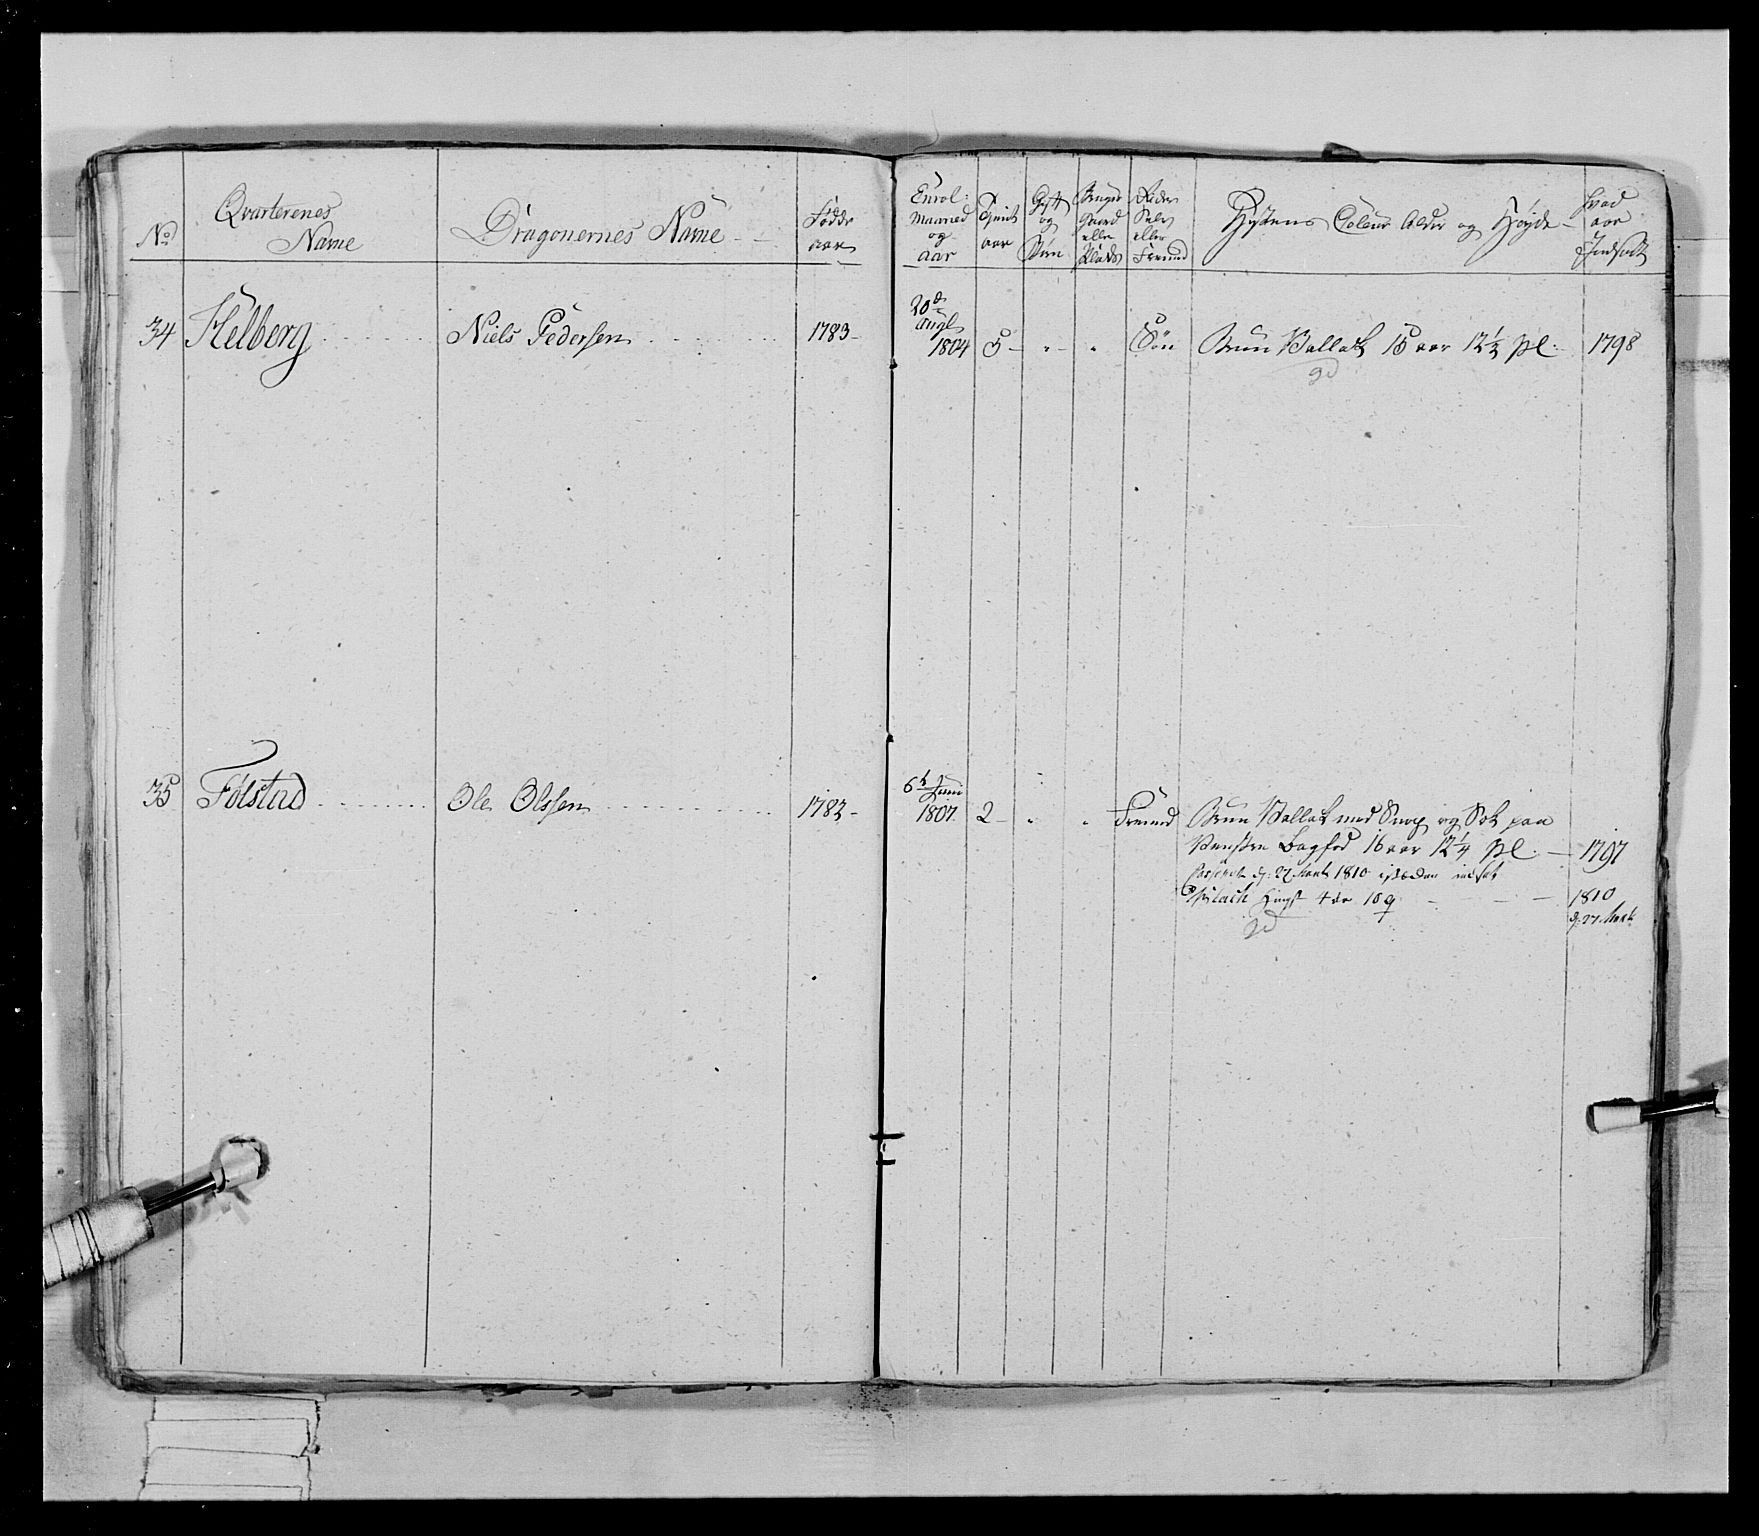 No
Qvarterenes
Name
Dragonernes Name
Födde
aar
Enrol:
Maaned
og
aar
Tjenist
aar
Gift
og
Börn
eller
Plads
Ryder
Selv
eller
Fremmd
Hestens Coleur Alder og Höyde
hvad
aar
Indsadt
34 Helberg
Niels Pedersen
1783
20de
Augt
1804
5
Sön
Brun Vallak 15 aar 12½ pl:
1798
gd
35 Fölstad
Ole Olssen
1782
6t Juni
1807
2
Fremmd
Brun Vallak med Snop og Sok paa
Venstre Bagfod 16 aar 12¼ pl.
1797
Casseret d: 27 Marts 1810 isteden indsat
Hingst 4 aar 10 q
1810
d: 27. Marts
gd